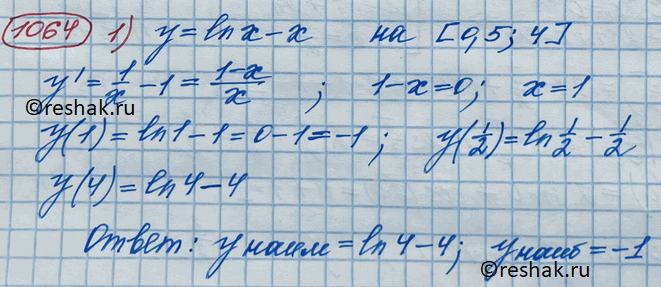 1064 1) y = ln x - x на [0,5; 4]
y' = 1/x - 1 = (1-x)/x ; 1-x=0; x=1
©reshak.ru
y(1) = ln1 - 1 = 0 - 1 = -1; y(1/2) = ln 1/2 - 1/2
y(4) = ln4 - 4
Ответ: y наим = ln4 - 4; y наиб = -1
©reshak.ru